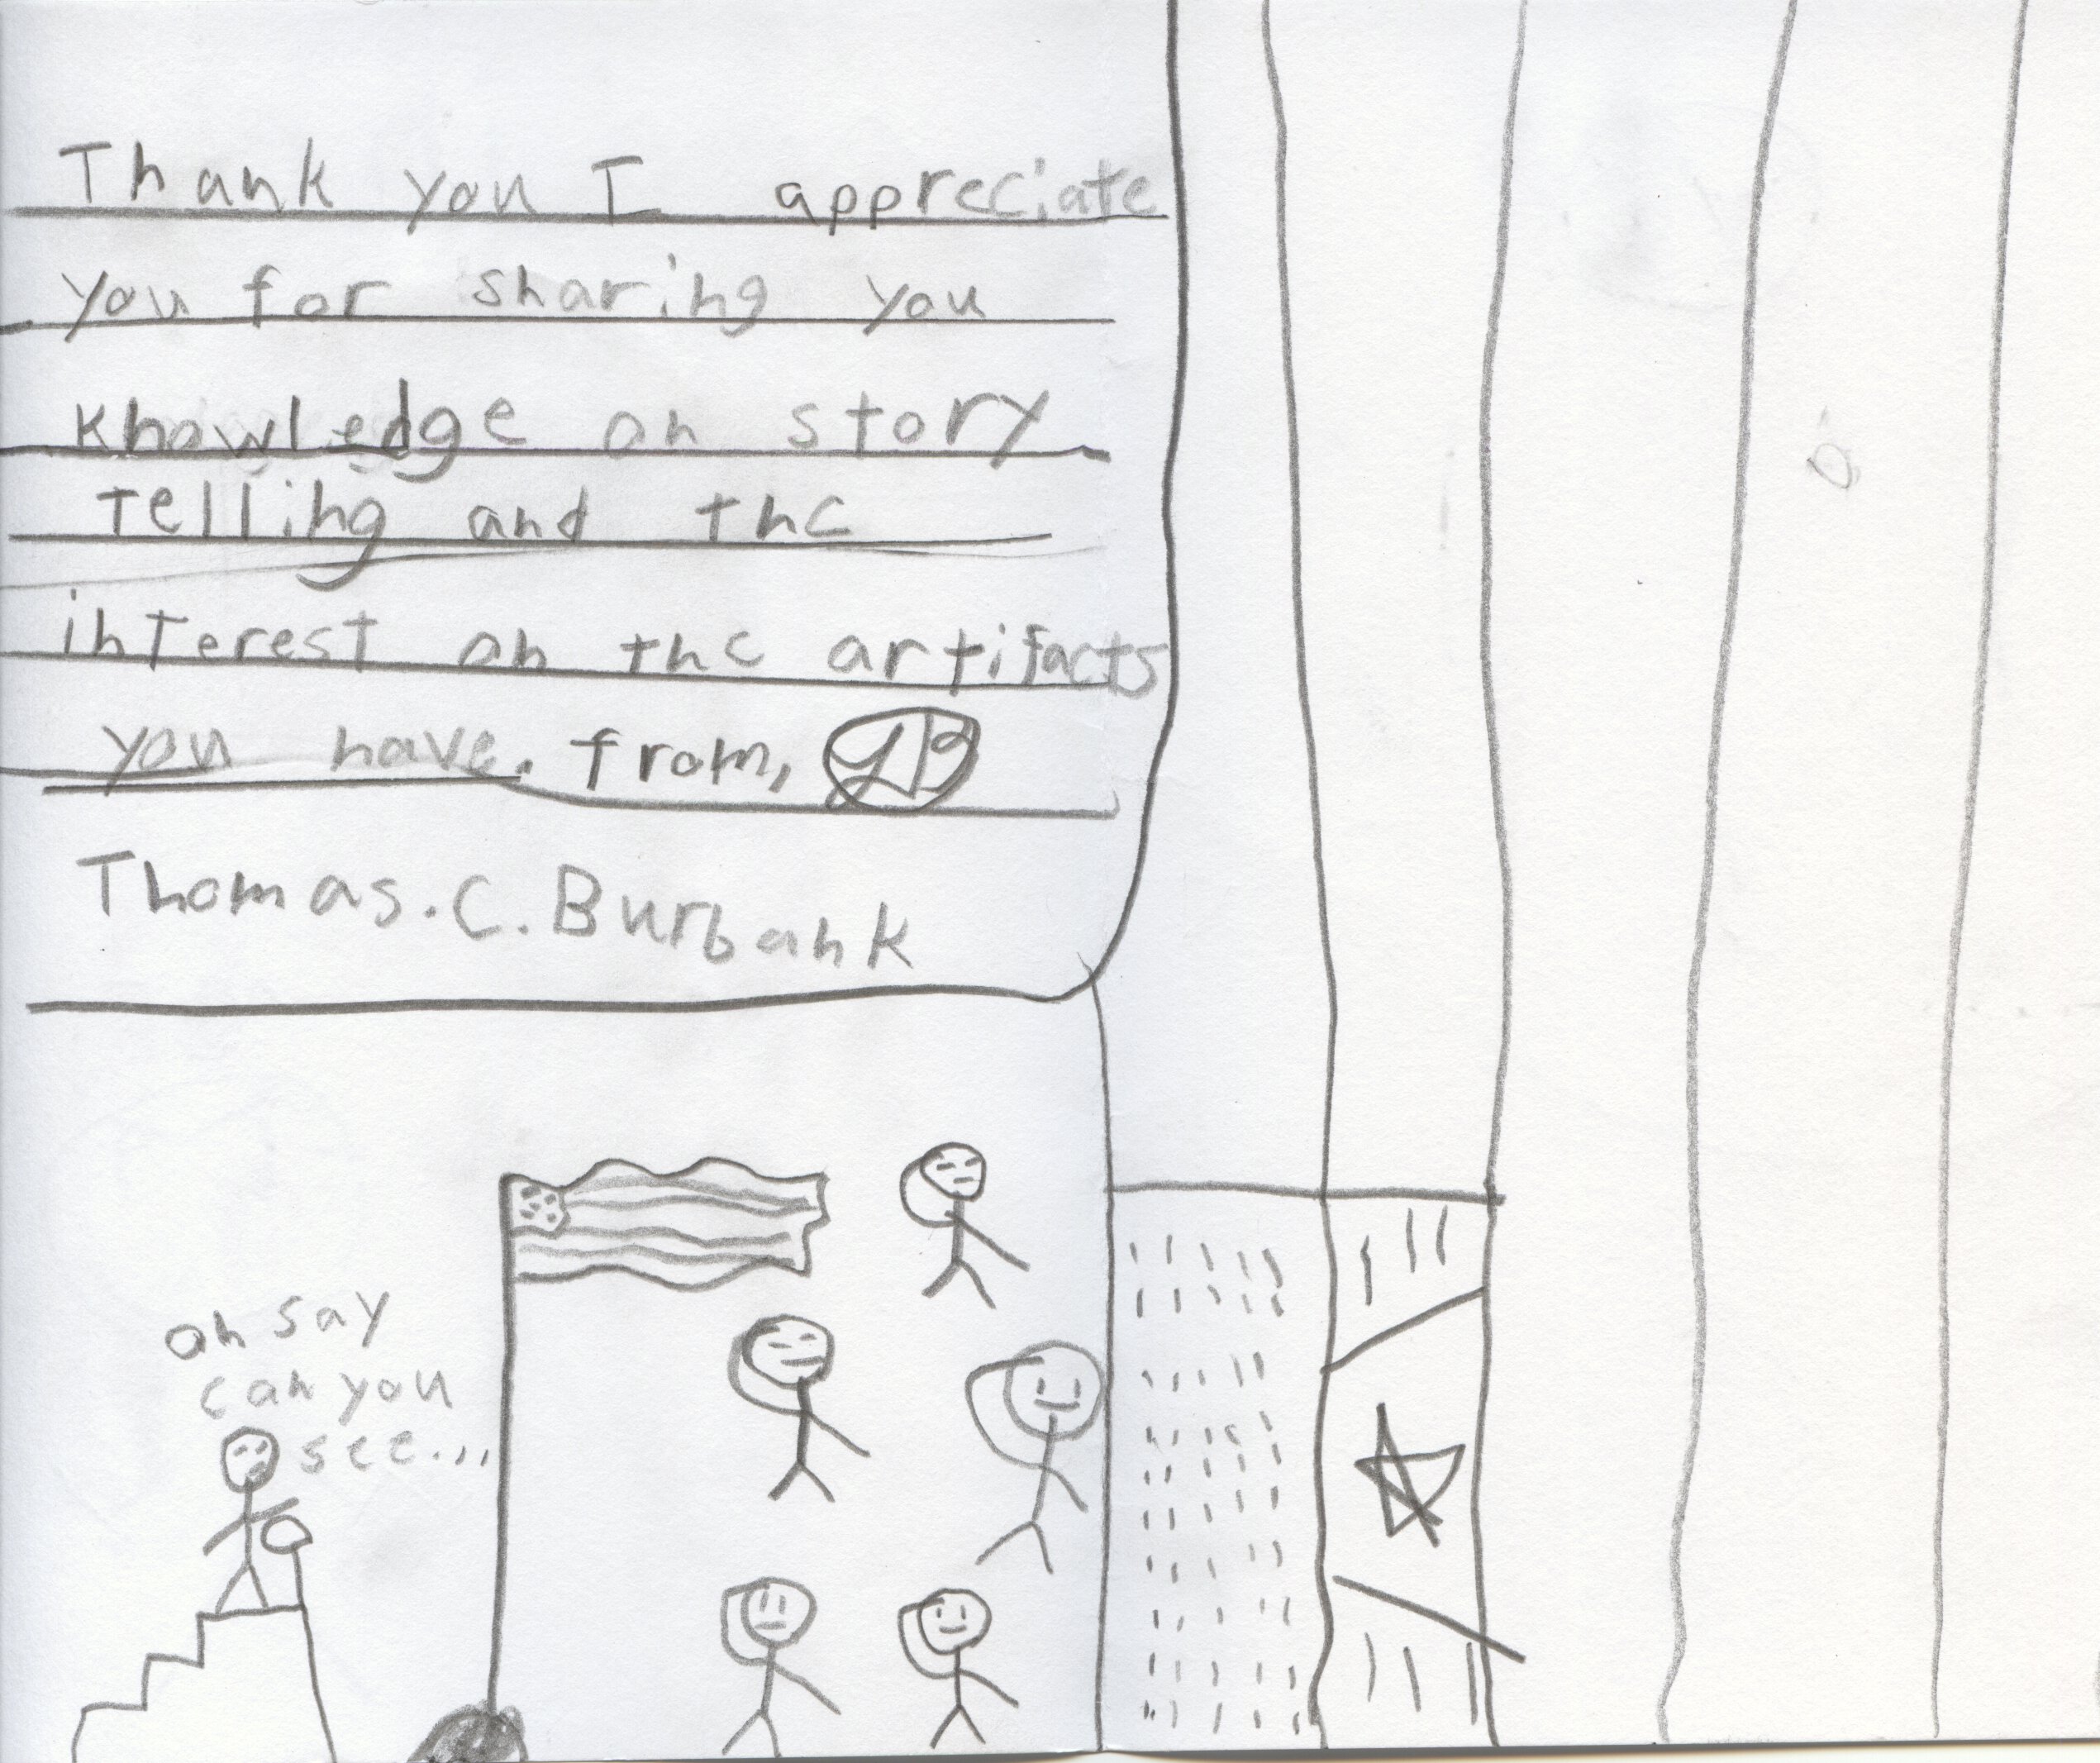 Thank you I appreciate
you for sharing you
knowledge on story
telling and the
interest on the artifacts
you have. from,
Thomas.C.Burbank
oh say
can you
see...